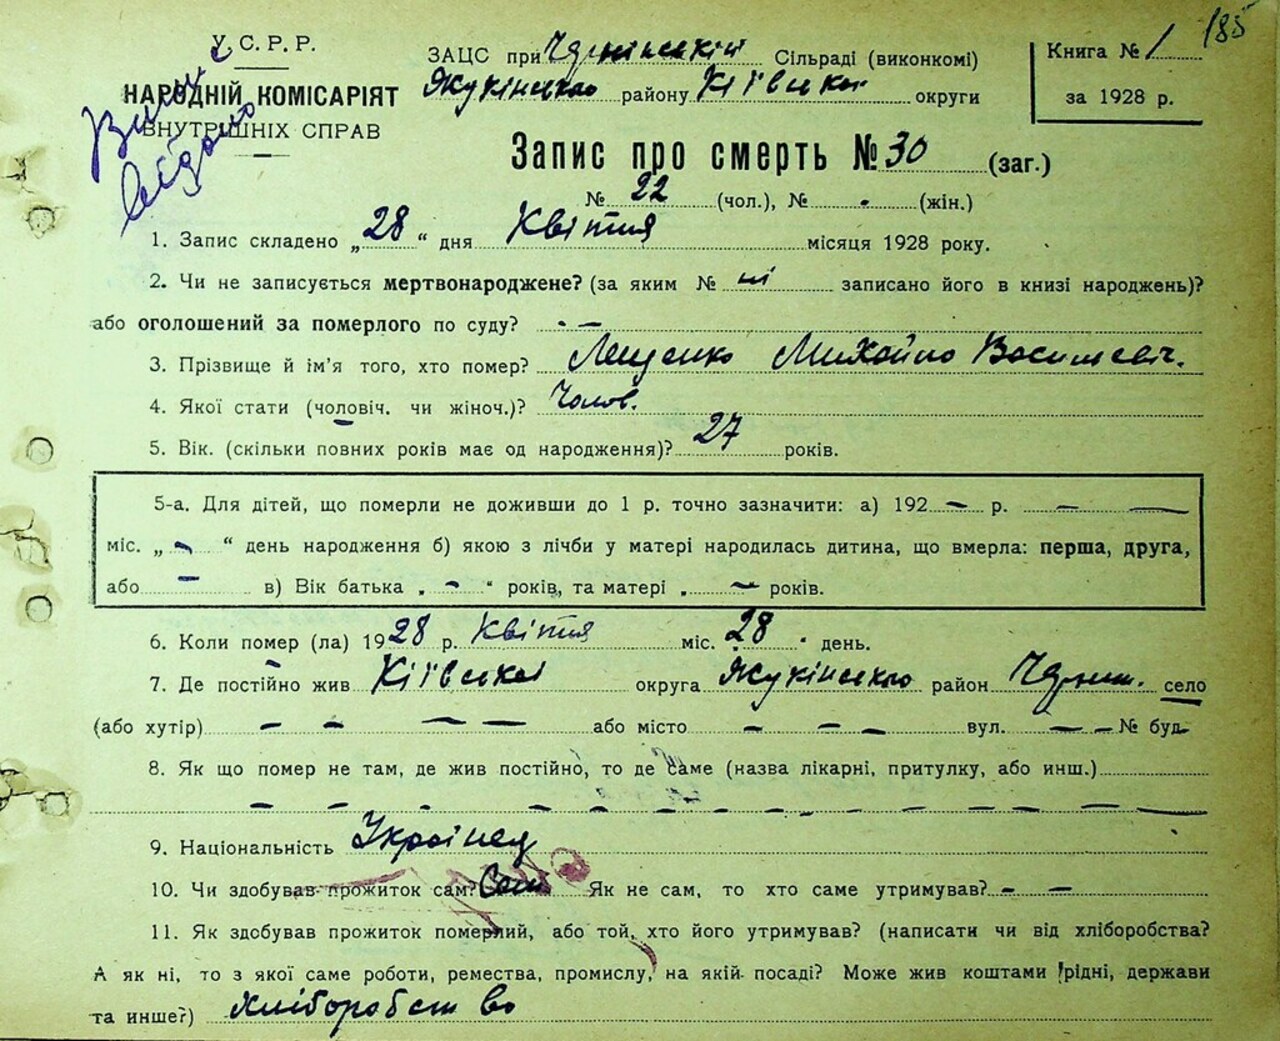 185
У. С. Р. Р.
НАРОДНІЙ КОМІСАРІЯТ
ВНУТРІШНІХ СПРАВ
видано
ЗАЦС при Сільраді (виконкомі)
району Київської округи
Книга № 1
за 1928 р.
Запис про смерть № 30 (заг.)
№ 22 (чол.), № - (жін.)
1. Запис складено „28“ дня Квітня місяця 1928 року.
2. Чи не записується мертвонароджене? (за яким № ні записано його в книзі народжень)?
або оголошений за померлого по суду? - —
3. Прізвище й ім'я того, хто помер? Лещенко Михайло Василевіч.
4. Якої стати (чоловіч. чи жіноч.)? Чолов.
5. Вік. (скільки повних років має од народження)? 27 років.
5-а. Для дітей, що померли не доживши до 1 р. точно зазначити: а) 192 — р. — —
міс. „ — “ день народження б) якою з лічби у матері народилась дитина, що вмерла: перша, друга,
або — в) Вік батька „ — “ років, та матері „ — років.
6. Коли помер (ла) 1928 р. Квітня міс. 28 день.
7. Де постійно жив Київської округа район село
(або хутір) — — — — або місто — — — вул. — — № буд. —
8. Як що помер не там, де жив постійно, то де саме (назва лікарні, притулку, або инш.)
— — — — — — — — — — — —
9. Національність Українец
10. Чи здобував прожиток сам? Сам Як не сам, то хто саме утримував? — —
11. Як здобував прожиток померлий, або той, хто його утримував? (написати чи від хліборобства?
А як ні, то з якої саме роботи, ремества, промислу, на якій посаді? Може жив коштами рідні, держави
та инше?) Хліборобство